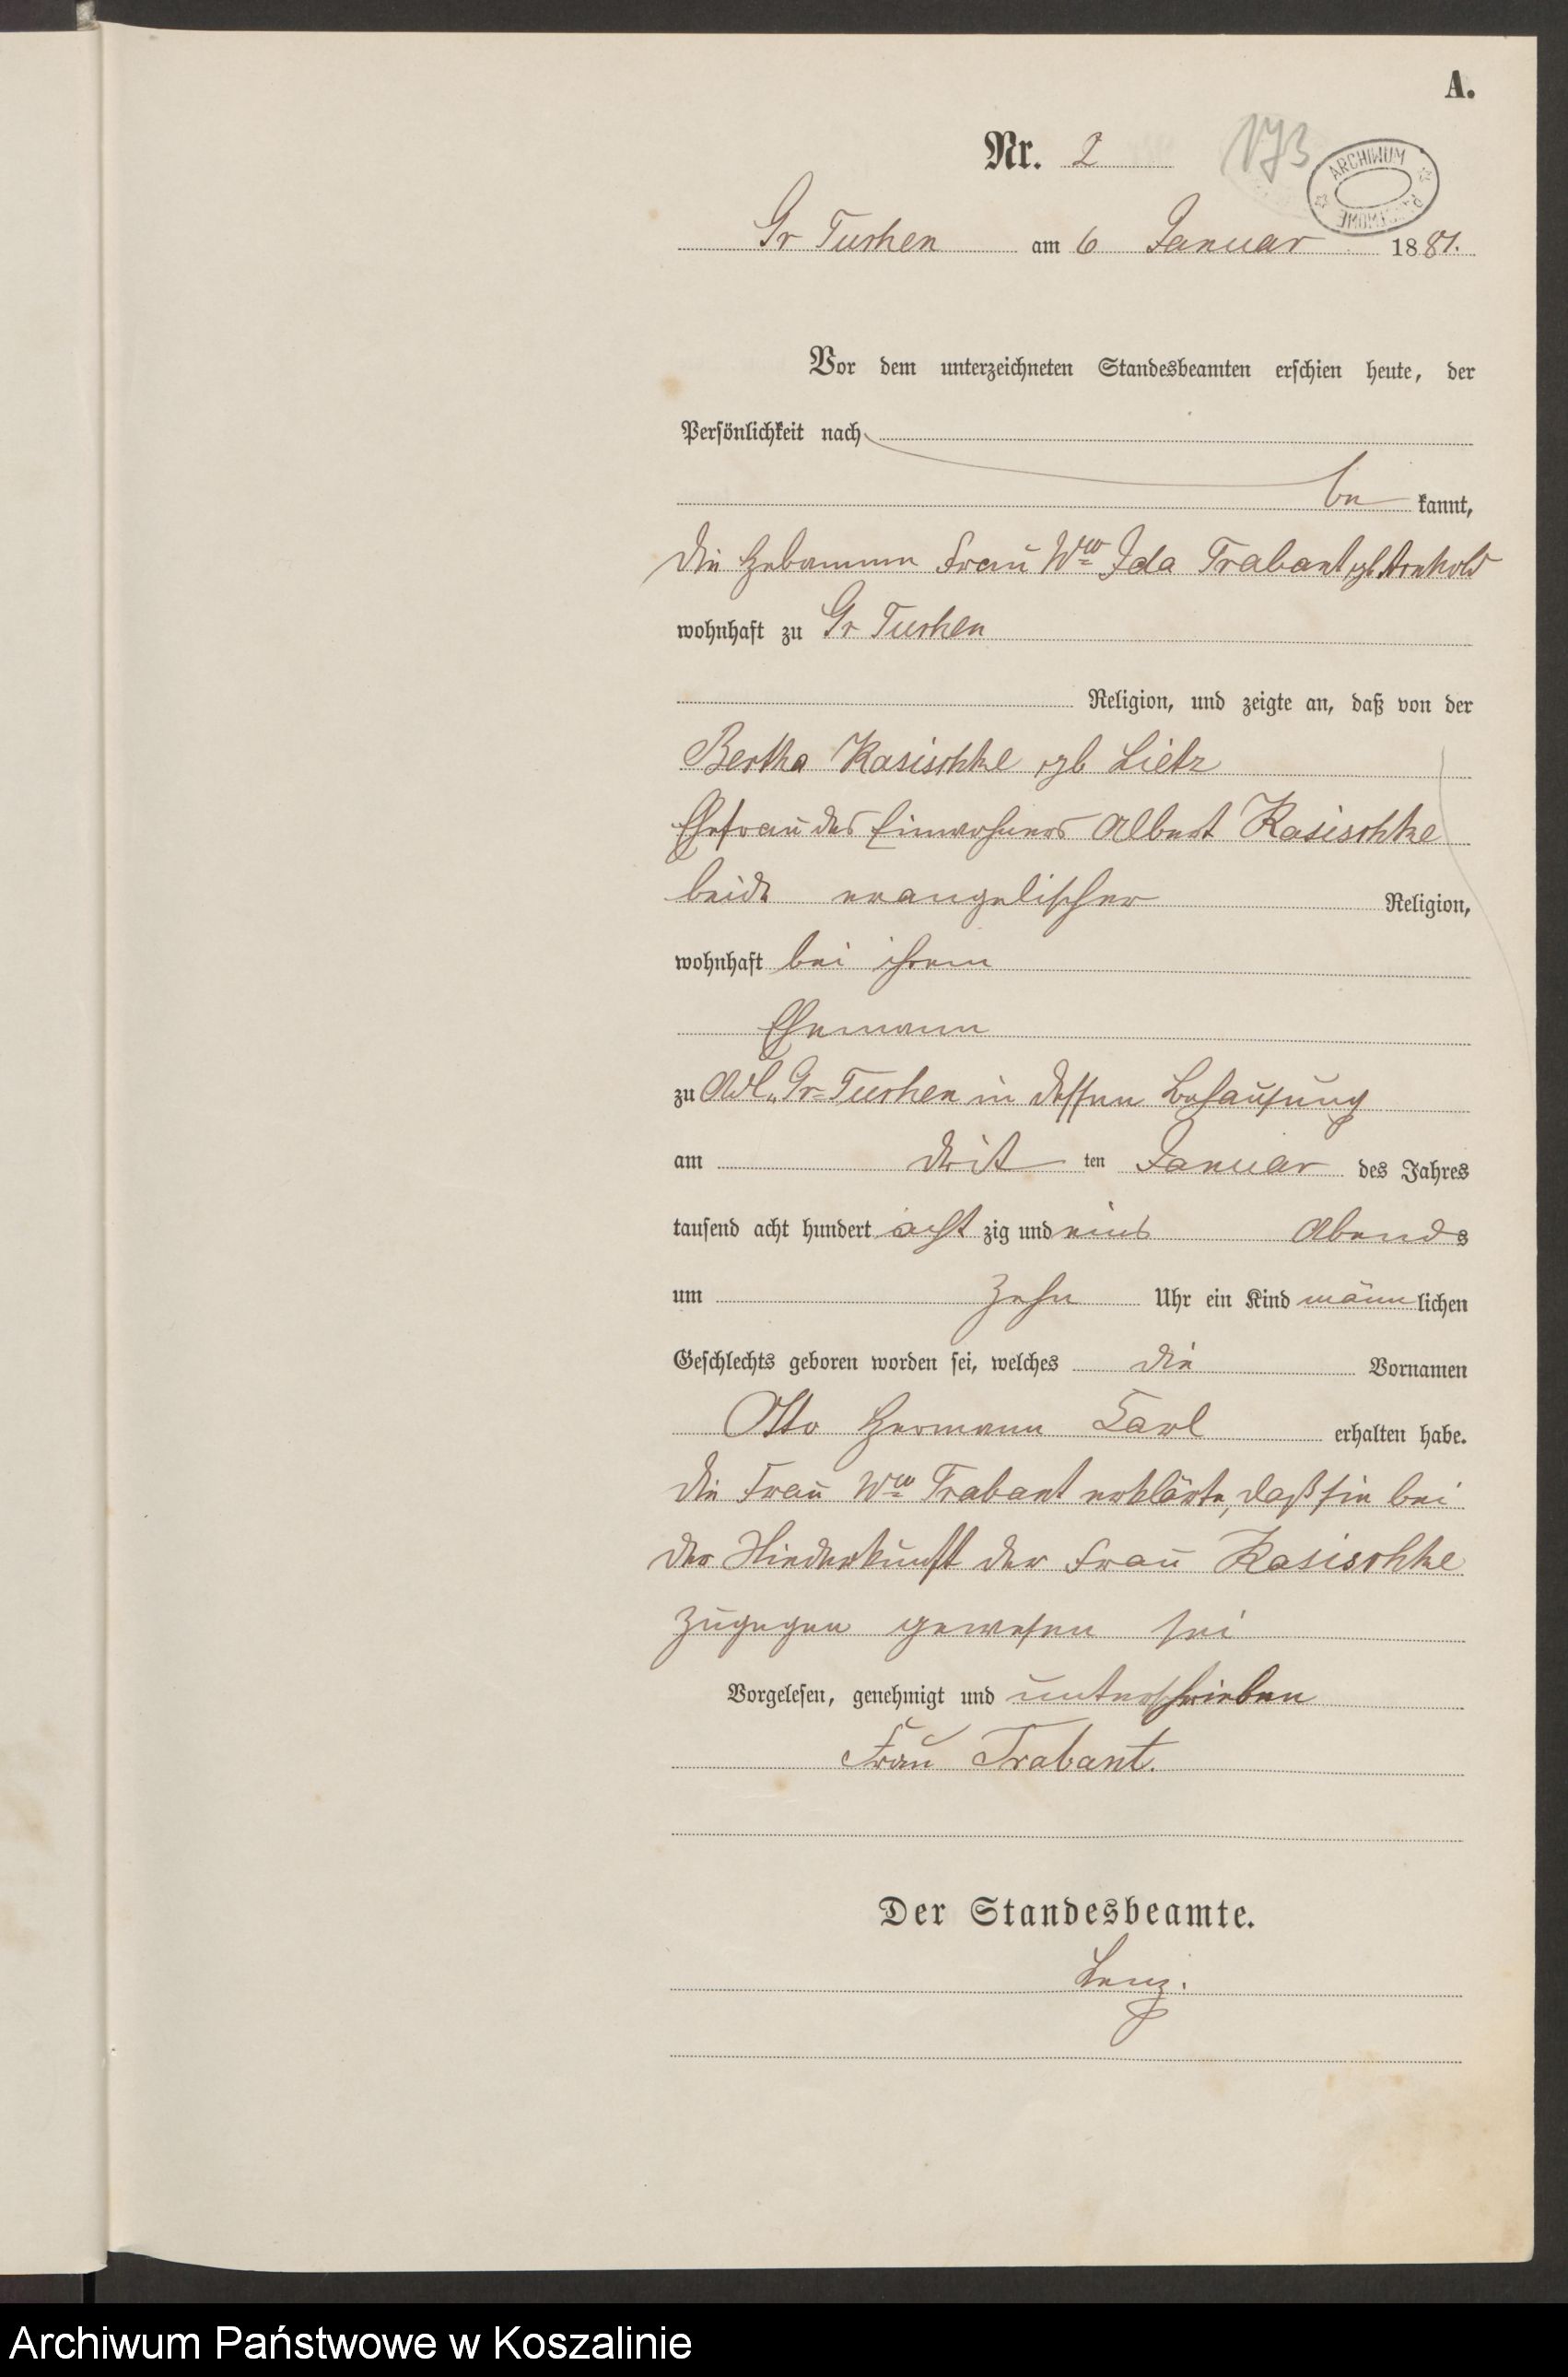 A.
Nr. 2
173
ARCHIWUM
Gr Tuchen am 6 Januar 1881.
Vor dem unterzeichneten Standesbeamten erschien heute, der
Persönlichkeit nach
be kannt,
die Hebamme Frau Ww Ida Trabant gb Arnhold
wohnhaft zu Gr Tuchen
Religion, und zeigte an, daß von der
Bertha Kasischke gb Lietz
Ehefrau des Einwohners Albert Kasischke
beide evangelischer Religion,
wohnhaft bei ihrem
Ehemann
zu Adl. Gr-Tuchen in dessen Behausung
am dritten Januar des Jahres
tausend acht hundert acht zig und eins Abends
um Zehn Uhr ein Kind männlichen
Geschlechts geboren worden sei, welches die Vornamen
Otto Hermann Carl erhalten habe.
Die Frau Ww Trabant erklärte, daß sie bei
der Niederkunft der Frau Kasischke
zugegen gewesen sei
Vorgelesen, genehmigt und unterschrieben
Frau Trabant.
Der Standesbeamte.
Lenz.
Archiwum Państwowe w Koszalinie